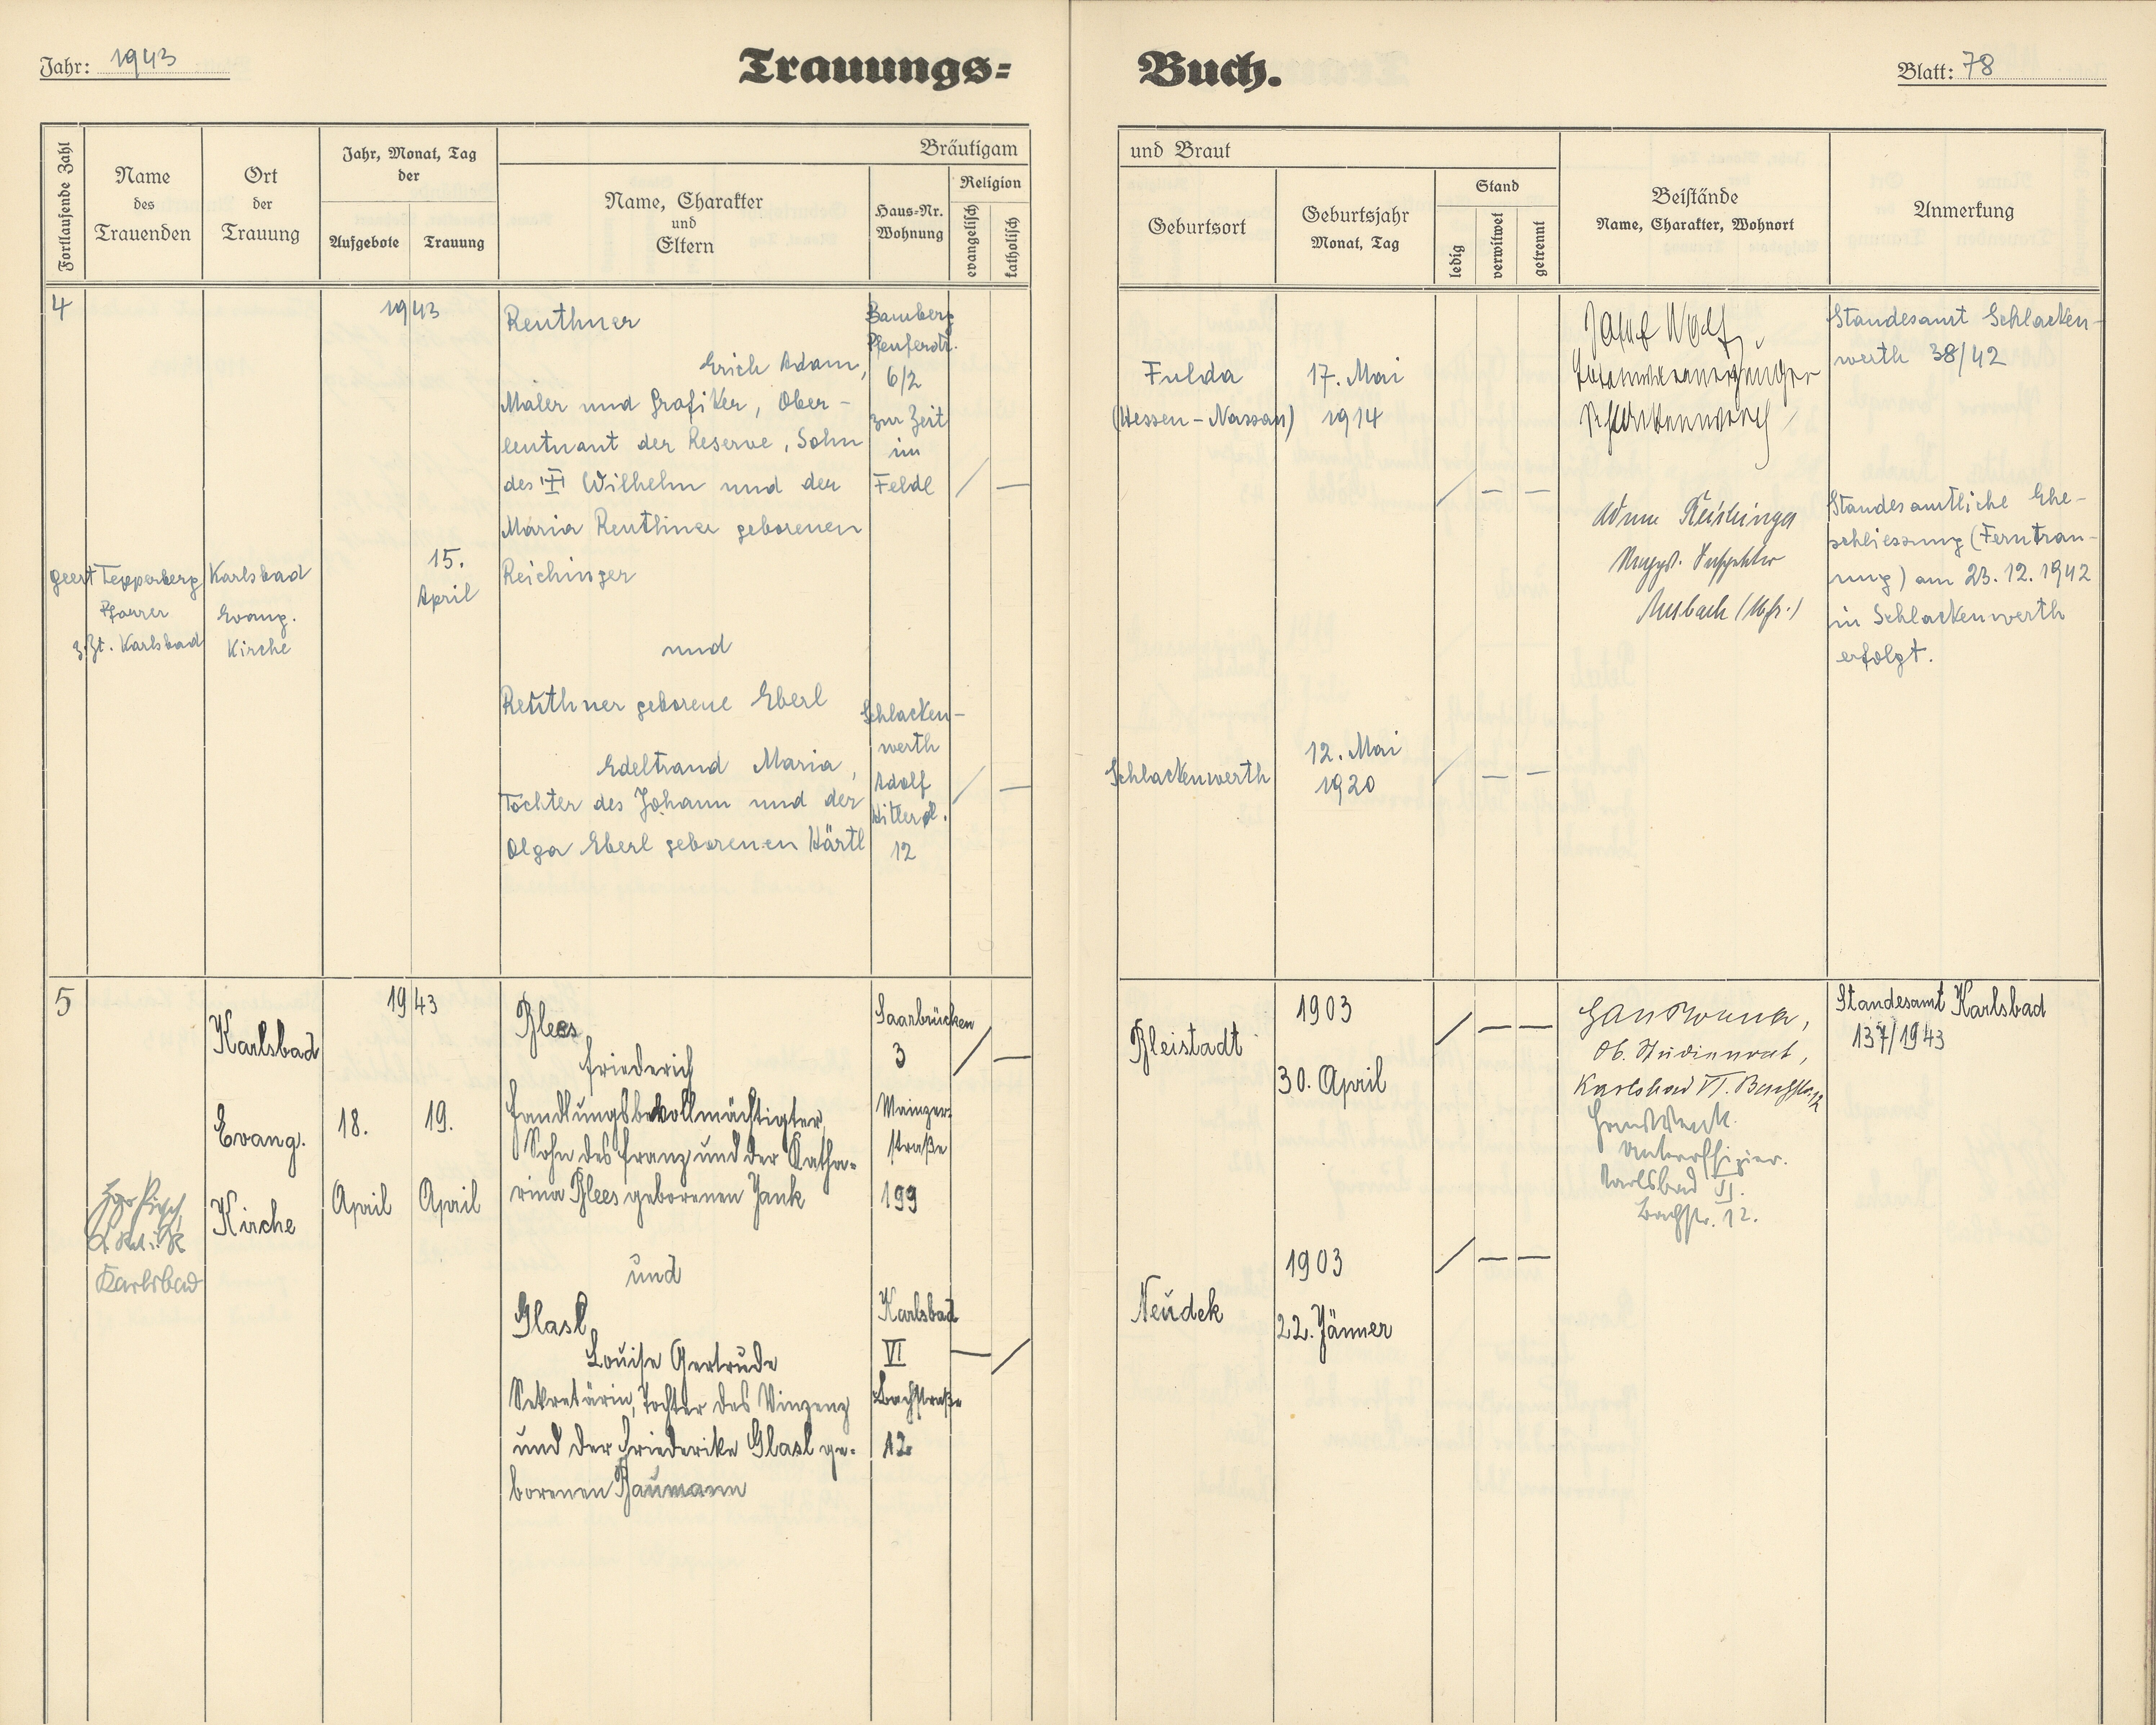 Jahr: 1943
Trauungs=
Buch.
Blatt: 78
Fortlaufende Zahl
Name
des
Trauenden
Ort
der
Trauung
Jahr, Monat, Tag
der
Aufgebote
Trauung
Bräutigam
Name, Charakter
und
Eltern
Haus=Nr.
Wohnung
Religion
evangelisch
katholisch
und Braut
Geburtsort
Geburtsjahr
Monat, Tag
Stand
ledig
verwitwet
getrennt
Beistände
Name, Charakter, Wohnort
Anmerkung
4
geert Tepperberg
Pfarrer
z. Zt. Karlsbad
Karlsbad
Evang.
Kirche
1943
15.
April
Reuthner
Erich Adam,
Maler und Grafiker, Ober-
leutnant der Reserve, Sohn
des Wilhelm und der
Maria Reuthner geborenen
Reichinger
und
Reuthner geborene Eberl
Edeltraud Maria,
Tochter des Johann und der
Olga Eberl geborenen Härtl
Bamberg
6/2
zur Zeit
im
Felde
/ —
Schlacken-
werth
Adolf
Hitlerpl.
12
/ —
Fulda
(Hessen-Nassau)
17. Mai
1914
/ — —
Schlackenwerth
12. Mai
1920
/ — —
Josef Wolf,
Ansbach (Mfr.)
Standesamt Schlacken-
werth 38/42
Standesamtliche Ehe-
schliessung (Ferntrau-
ung) am 23.12.1942
in Schlackenwerth
erfolgt.
5
Karlsbad
Karlsbad
Evang.
Kirche
1943
18.
April
19.
April
Blees,
Friederich
Handlungsbevollmächtigter,
Sohn des Franz und der Katha-
rina Blees geborenen Jank
und
Glasl,
Louise Gertrude
Sekretärin, Tochter des Vinzenz
und der Friederike Glasl ge-
borenen Baumann
Saarbrücken
3
Mainzer-
straße
199
/ —
Karlsbad
VI
Bachstraße
12
— /
Bleistadt
1903
30. April
/ — —
Neudek
1903
22. Jänner
/ — —
Ob. Studienrat,
Karlsbad VI. Bachstr. 12
Unteroffizier.
Karlsbad VI.
Bachstr. 12.
Standesamt Karlsbad
137/1943